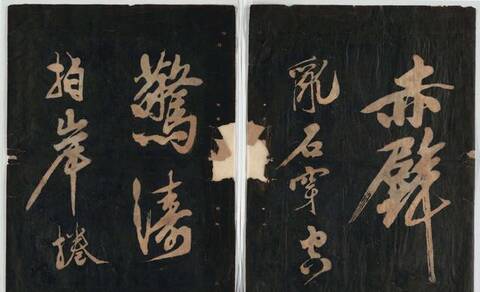 赤壁
亂石穿空
驚濤
拍岸捲